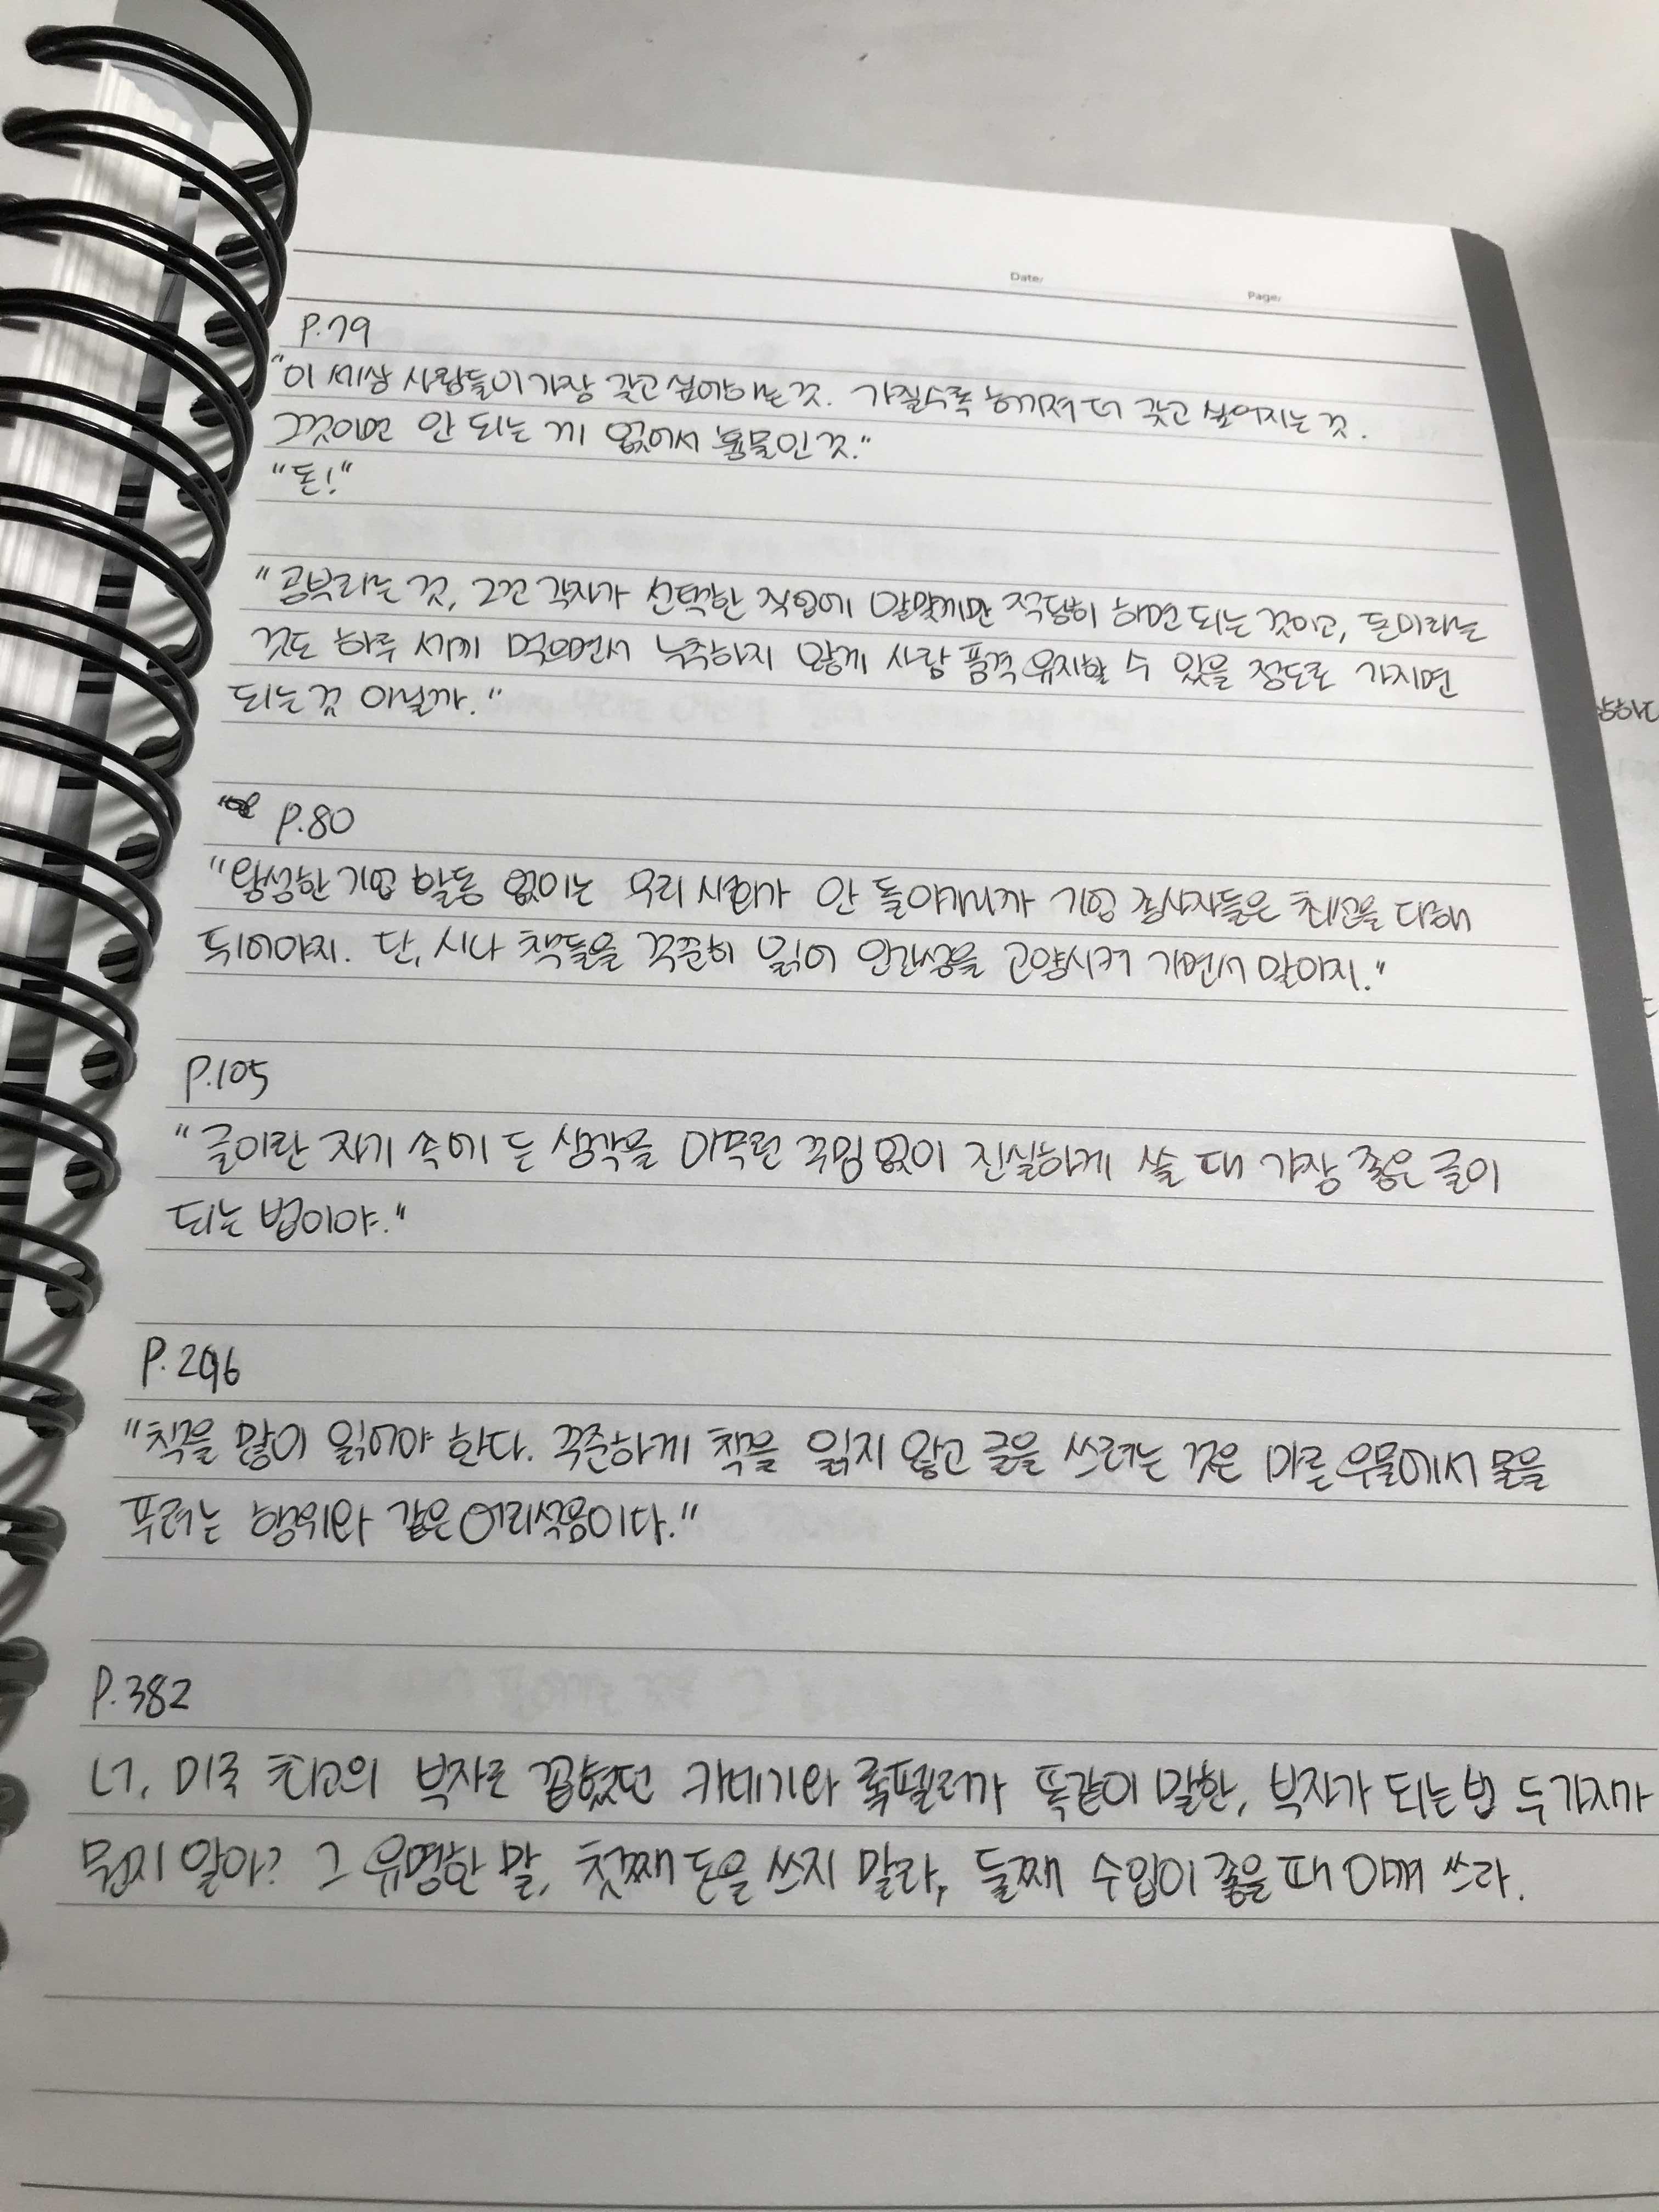 Date/
Page/
P.79
"이 세상 사람들이 가장 갖고 싶어하는 것. 가질수록 더 갖고 싶어지는 것.
그것이면 안 되는 게 없어서 괴물인 것."
"돈!"
"공부라는 것, 그건 각자가 선택한 직업에 알맞게만 적당히 하면 되는 것이고, 돈이라는
것도 하루 세끼 먹으면서 누추하지 않게 사람 품격 유지할 수 있을 정도로 가지면
되는 것 아닐까."
P.80
"왕성한 기업 활동 없이는 우리 사회가 안 돌아가니까 기업 종사자들은 최선을 다해
뛰어야지. 단, 시나 책들을 꾸준히 읽어 인간성을 고양시켜 가면서 말이지."
P.105
"글이란 자기 속에 든 생각을 아무런 꾸밈없이 진실하게 쓸 때 가장 좋은 글이
되는 법이야."
P.296
"책을 많이 읽어야 한다. 꾸준하게 책을 읽지 않고 글을 쓰려는 것은 마른 우물에서 물을
푸려는 행위와 같은 어리석음이다."
P.382
너, 미국 최고의 부자로 꼽혔던 카네기와 록펠러가 똑같이 말한, 부자가 되는 법 두가지가
뭔지 알아? 그 유명한 말, 첫째 돈을 쓰지 말라, 둘째 수입이 좋을 때 아껴 쓰라.